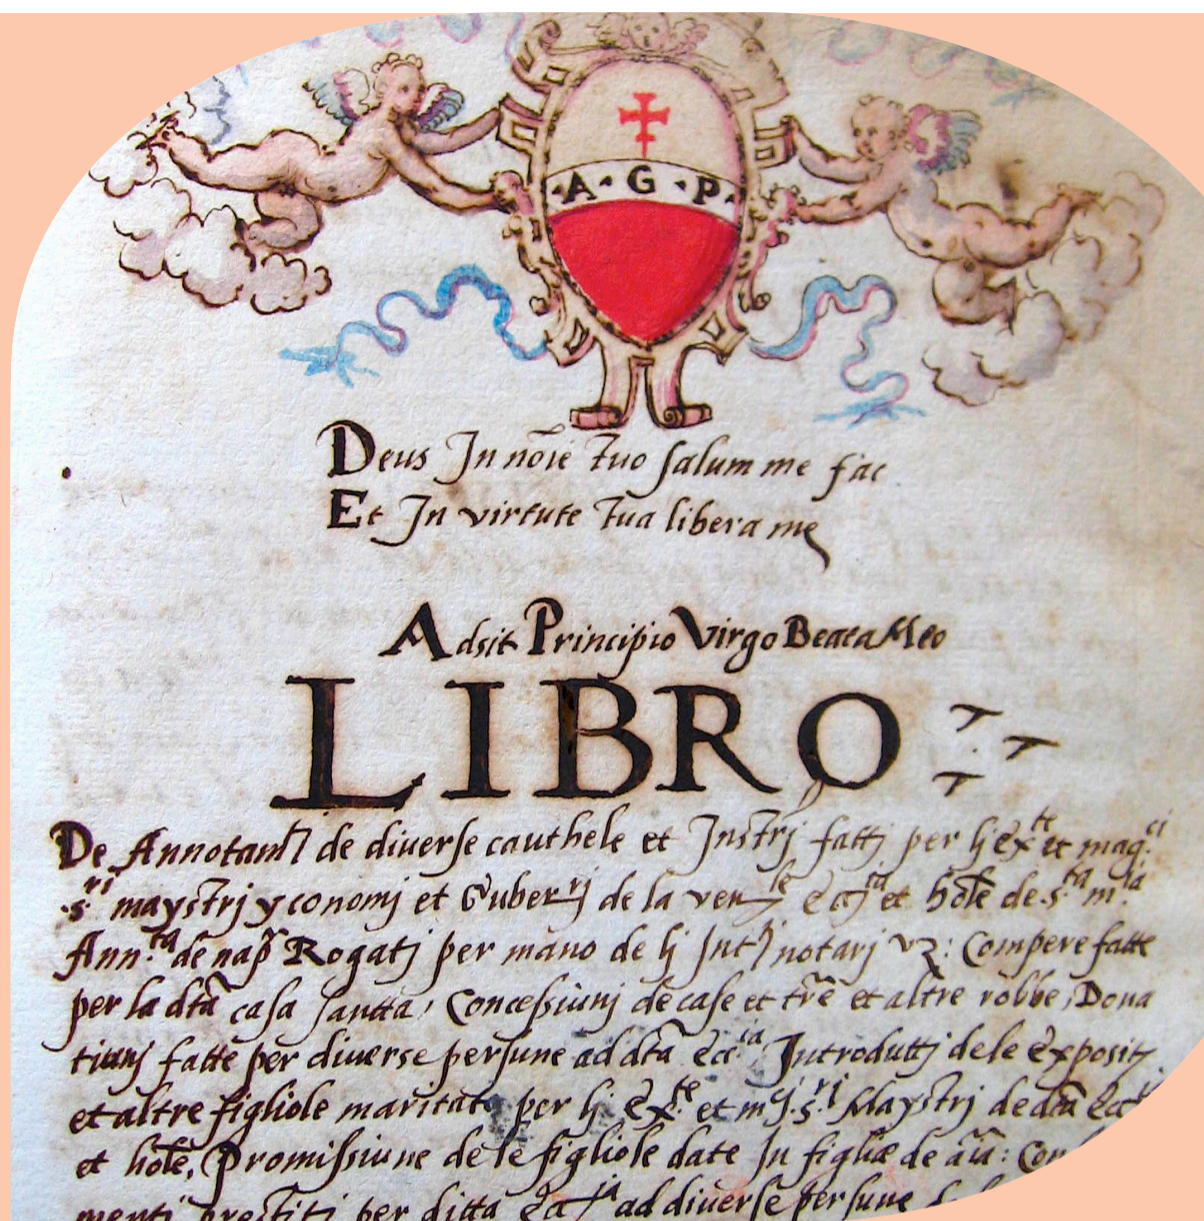 ·A·G·P·
Deus In nõie tuo salum me fac
Et In virtute tua libera me
Adsit Principio Virgo Beata Meo
LIBRO
De de diuerse cauthele et Instrj fattj per lj Exte et magci
sri maystrj yconomj et Guberrj de la ven et hõle de sta mla
Annta de nap̃ Rogatj per mano de lj notarj vz: Compere fatte
per la dtã casa santta, Concessiunj de case et trẽ et altre robbe, Dona
tiunj fatte per diuerse persune ad dtã Eccia, Introduttj dele Expositj
et altre figliole maritate per lj Exte et mcj sri Maystrj de dtã
et hõle, Promissiune de le figliole date In figliæ de ãia:
mentj prestitj per ditta ad diuerse persune